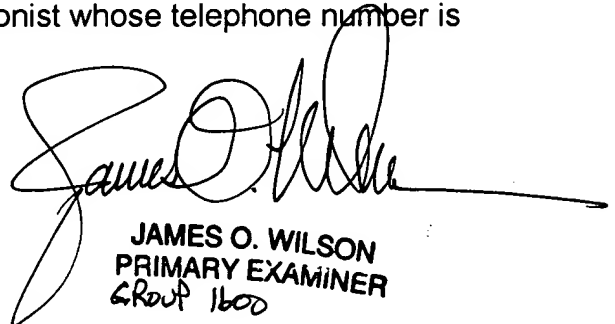 onist whose telephone number is
James O. Wilson
JAMES O. WILSON
PRIMARY EXAMINER
GROUP 1600